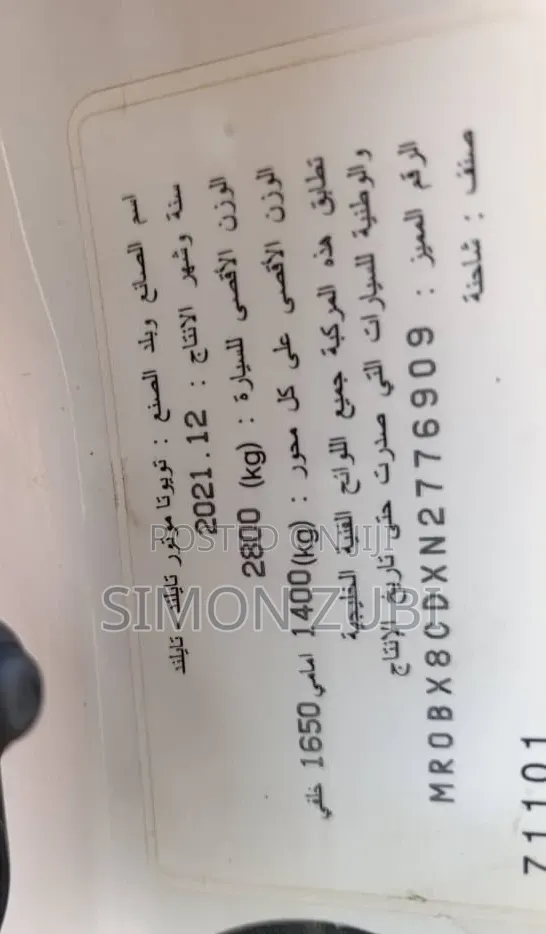 اسم الصانع وبلد الصنع : تويوتا موتور تايلند، تايلند
سنة وشهر الانتاج : 2021.12
الوزن الأقصى للسيارة : 2800 (kg)
الوزن الأقصى على كل محور : 1400(kg) امامي 1650 خلفي
تطابق هذه المركبة جميع اللوائح الفنية الخليجية
والوطنية للسيارات التي صدرت حتى تاريخ الإنتاج
الرقم المميز : MR0BX8CDXN2776909
صنف : شاحنة
71101
POSTED ON JIJI
SIMON ZUBI